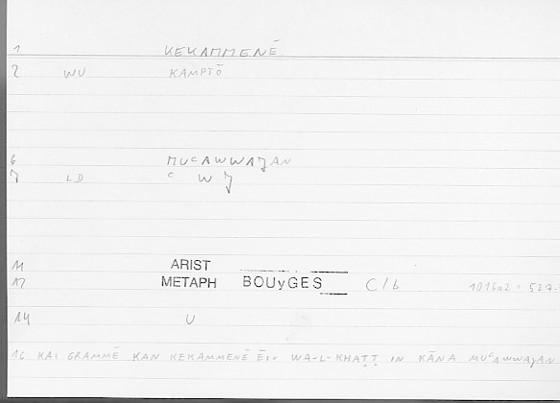 1 KEKAMMENĒ
2 WU KAMPTŌ
6 MUᶜAWWAJAN
7 LD ᶜ W J
11 ARIST
12 METAPH BOUyGES C/b 1016a2 = 527.
14 U
16 KAI GRAMMĒ KAN KEKAMMENĒ ĒI: WA-L-KHAṬṬ IN KĀNA MUᶜAWWAJAN